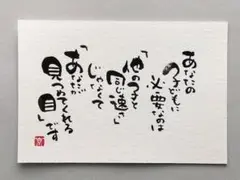 あなたの
子どもに
必要なのは
「他の子と
同じ速さ」
じゃなくて
「あなたが
見つめてくれる
目」です